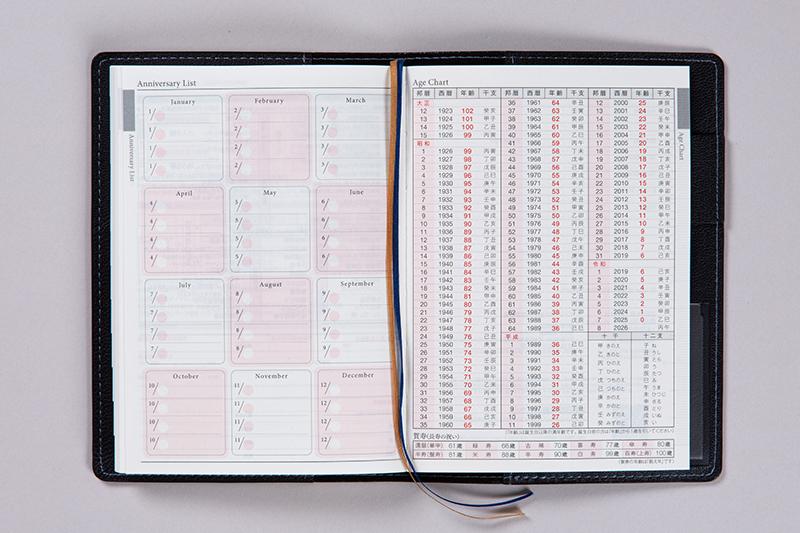 Anniversary List
January
1/
1/
1/
1/
February
2/
2/
2/
2/
March
3/
3/
3/
3/
April
4/
4/
4/
4/
May
5/
5/
5/
5/
June
6/
6/
6/
6/
July
7/
7/
7/
7/
August
8/
8/
8/
8/
September
9/
9/
9/
9/
October
10/
10/
10/
10/
November
11/
11/
11/
11/
December
12/
12/
12/
12/
Anniversary List
Age Chart
邦暦 西暦 年齢 干支
大正
12 1923 102 癸亥
13 1924 101 甲子
14 1925 100 乙丑
15 1926 99 丙寅
昭和
1 1926 99 丙寅
2 1927 98 丁卯
3 1928 97 戊辰
4 1929 96 己巳
5 1930 95 庚午
6 1931 94 辛未
7 1932 93 壬申
8 1933 92 癸酉
9 1934 91 甲戌
10 1935 90 乙亥
11 1936 89 丙子
12 1937 88 丁丑
13 1938 87 戊寅
14 1939 86 己卯
15 1940 85 庚辰
16 1941 84 辛巳
17 1942 83 壬午
18 1943 82 癸未
19 1944 81 甲申
20 1945 80 乙酉
21 1946 79 丙戌
22 1947 78 丁亥
23 1948 77 戊子
24 1949 76 己丑
25 1950 75 庚寅
26 1951 74 辛卯
27 1952 73 壬辰
28 1953 72 癸巳
29 1954 71 甲午
30 1955 70 乙未
31 1956 69 丙申
32 1957 68 丁酉
33 1958 67 戊戌
34 1959 66 己亥
35 1960 65 庚子
邦暦 西暦 年齢 干支
36 1961 64 辛丑
37 1962 63 壬寅
38 1963 62 癸卯
39 1964 61 甲辰
40 1965 60 乙巳
41 1966 59 丙午
42 1967 58 丁未
43 1968 57 戊申
44 1969 56 己酉
45 1970 55 庚戌
46 1971 54 辛亥
47 1972 53 壬子
48 1973 52 癸丑
49 1974 51 甲寅
50 1975 50 乙卯
51 1976 49 丙辰
52 1977 48 丁巳
53 1978 47 戊午
54 1979 46 己未
55 1980 45 庚申
56 1981 44 辛酉
57 1982 43 壬戌
58 1983 42 癸亥
59 1984 41 甲子
60 1985 40 乙丑
61 1986 39 丙寅
62 1987 38 丁卯
63 1988 37 戊辰
64 1989 36 己巳
平成
1 1989 36 己巳
2 1990 35 庚午
3 1991 34 辛未
4 1992 33 壬申
5 1993 32 癸酉
6 1994 31 甲戌
7 1995 30 乙亥
8 1996 29 丙子
9 1997 28 丁丑
10 1998 27 戊寅
11 1999 26 己卯
邦暦 西暦 年齢 干支
12 2000 25 庚辰
13 2001 24 辛巳
14 2002 23 壬午
15 2003 22 癸未
16 2004 21 甲申
17 2005 20 乙酉
18 2006 19 丙戌
19 2007 18 丁亥
20 2008 17 戊子
21 2009 16 己丑
22 2010 15 庚寅
23 2011 14 辛卯
24 2012 13 壬辰
25 2013 12 癸巳
26 2014 11 甲午
27 2015 10 乙未
28 2016 9 丙申
29 2017 8 丁酉
30 2018 7 戊戌
31 2019 6 己亥
令和
1 2019 6 己亥
2 2020 5 庚子
3 2021 4 辛丑
4 2022 3 壬寅
5 2023 2 癸卯
6 2024 1 甲辰
7 2025 0 乙巳
8 2026 丙午
十干
甲 きのえ
乙 きのと
丙 ひのえ
丁 ひのと
戊 つちのえ
己 つちのと
庚 かのえ
辛 かのと
壬 みずのえ
癸 みずのと
十二支
子 ね
丑 うし
寅 とら
卯 う
辰 たつ
巳 み
午 うま
未 ひつじ
申 さる
酉 とり
戌 いぬ
亥 い
賀寿(長寿の祝い)
還暦(華甲) 61歳 緑寿 66歳 古稀 70歳 喜寿 77歳 傘寿 80歳
半寿(盤寿) 81歳 米寿 88歳 卒寿 90歳 白寿 99歳 百寿(上寿) 100歳
(賀寿の年齢は「数え年」です)
Age Chart